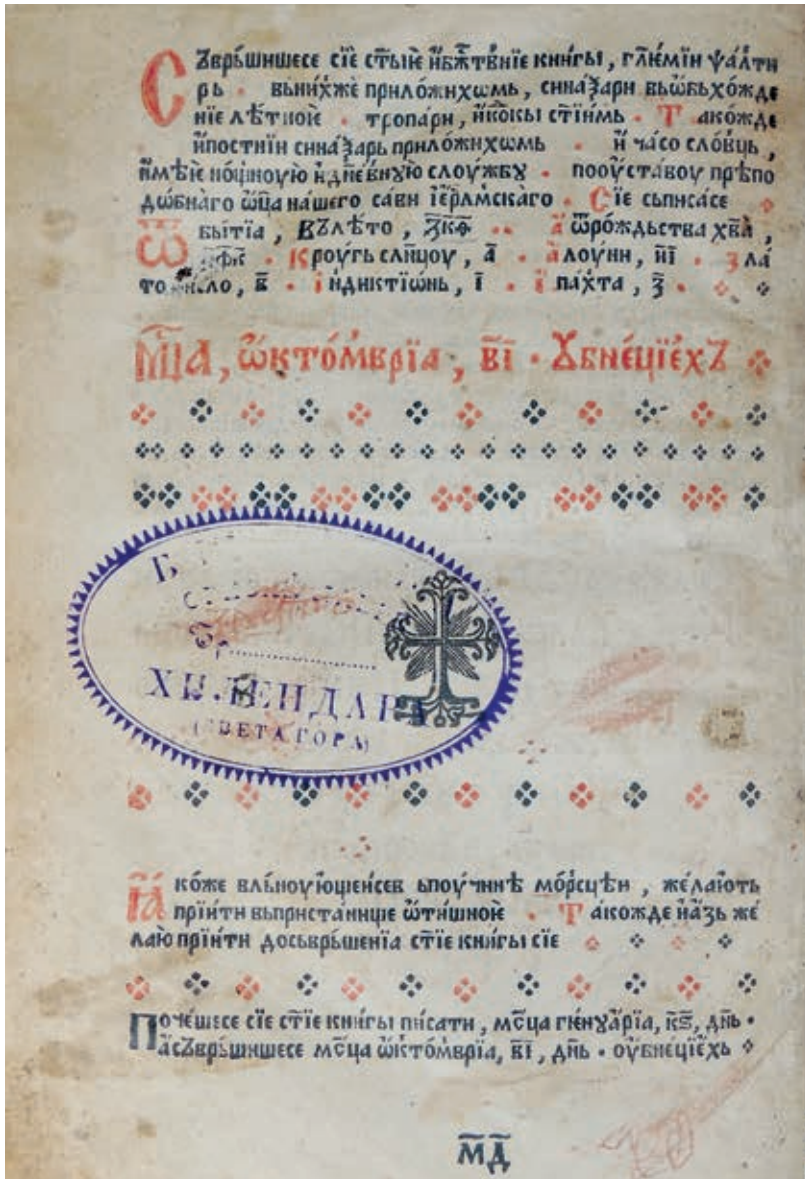 Съврьшишесе сїе ст҃ыѥ и҆бж҃твн҃їе кни́гы, гл҃ѥмїи ѱа́лти
рь • вьни́хже прило́жихѡмь, сина́ѯари вьѡ҆бьхо́жде
нїе лѣ́тноѥ • тропа́ри, и҆ко́кы ст҃їимь • Т а́кожде
и҆по́стнїи сина́ѯарь прило́жихѡмь • и҆ ча́со сло́вць,
и҆мѣ́ѥ но́щноую и҆дн҃е́вную слоу́жбу • пооу҆ста́воу прѣ́по
дѡ́бнаго ѡ҆ц҃а на́шего са́ви і҆ер҃лм́скаго • Сїе сьписа́се
Ѿ бытїа, Вълѣ́то, ҂зк҃ѳ • а҆ ѿро́ждьства хв҃а,
Кроу́гь сл҃нцоу, а҃ • а҆ лоу́ни, и҃і • зла́
то, в҃ • і҆нди́ктїѡнь, і҃ • і҆па́хта, з҃ •
Мц҃а, ѡ҆кто́мврїа, в҃і • Ꙋбне́цїехъ
ХИЛЕНДАРА
(СВЕТА ГОРА)
Ꙗ ко́же вльноую́щеисев ьпоучи́нѣ мо́рсцѣи, же́лають
прїи́ти вьприста́нище ѡ҆ти́шноѥ • Т а́кожде и҆а́зь же
лаю прїи́ти досьврьше́нїа ст҃їе кни́гы сїе
Поче́шесе сїе ст҃їе кни́гы пи́сати, мс҃ца гѥнꙋа́рїа, к҃ѕ, дн҃ь •
а҆съврьши́шесе мс҃ца ѡ҆кто́мврїа, в҃і, дн҃ь • оу҆бне́цїехь
м҃д҃